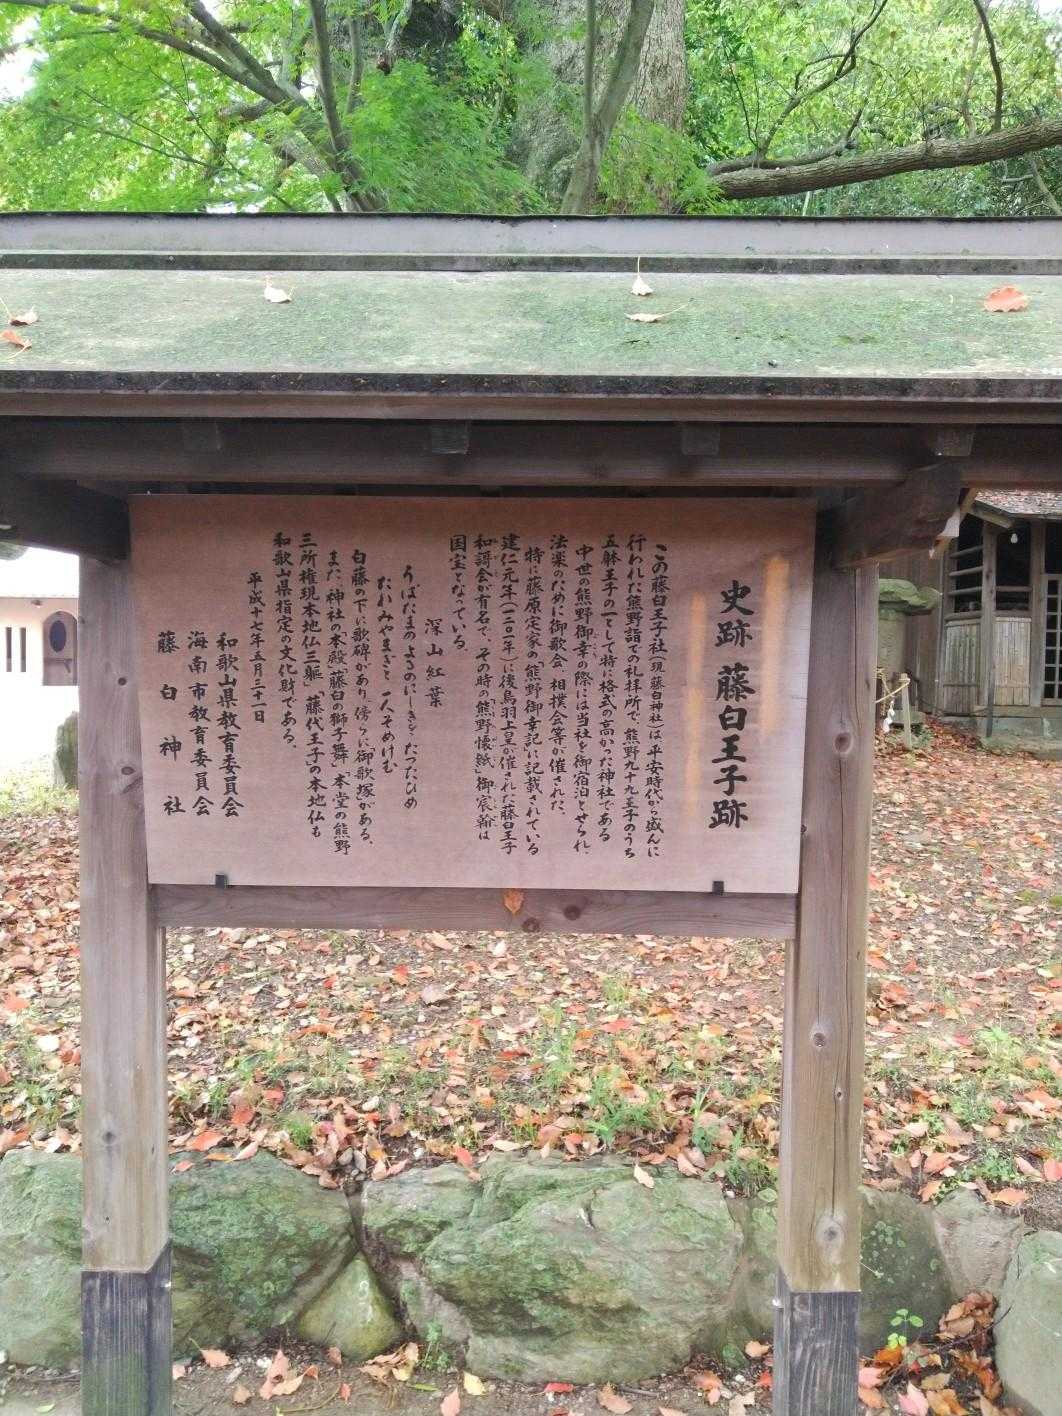 史跡 藤白王子跡
この藤白王子社(現藤白神社)は平安時代から盛んに
行われた熊野詣での礼拝所で、熊野九十九王子のうち
五躰王子の一として特に格式の高かった神社である
中世の熊野御幸の際には当社を御宿泊とせられ、
法楽のために御歌会、相撲会等が催された。
特に藤原定家の「熊野御幸記」に記載されている
建仁元年(一二〇一年)に後鳥羽上皇が催された藤白王子
和謌会が有名で、その時の「熊野懐紙」御宸翰は
国宝となっている。
深山紅葉
うばたまのよるのにしきをたつたひめ
たれみやまぎと一人そめけむ
白藤の下に歌碑があり、傍らに「御歌塚」がある。
また、神社の本殿「藤白の獅子舞」、「本堂の熊野
三所権現本地仏三躯」、「藤代王子」の本地仏も
和歌山県指定の文化財である。
平成十七年五月三十一日
和歌山県教育委員会
海南市教育委員会
藤白神社